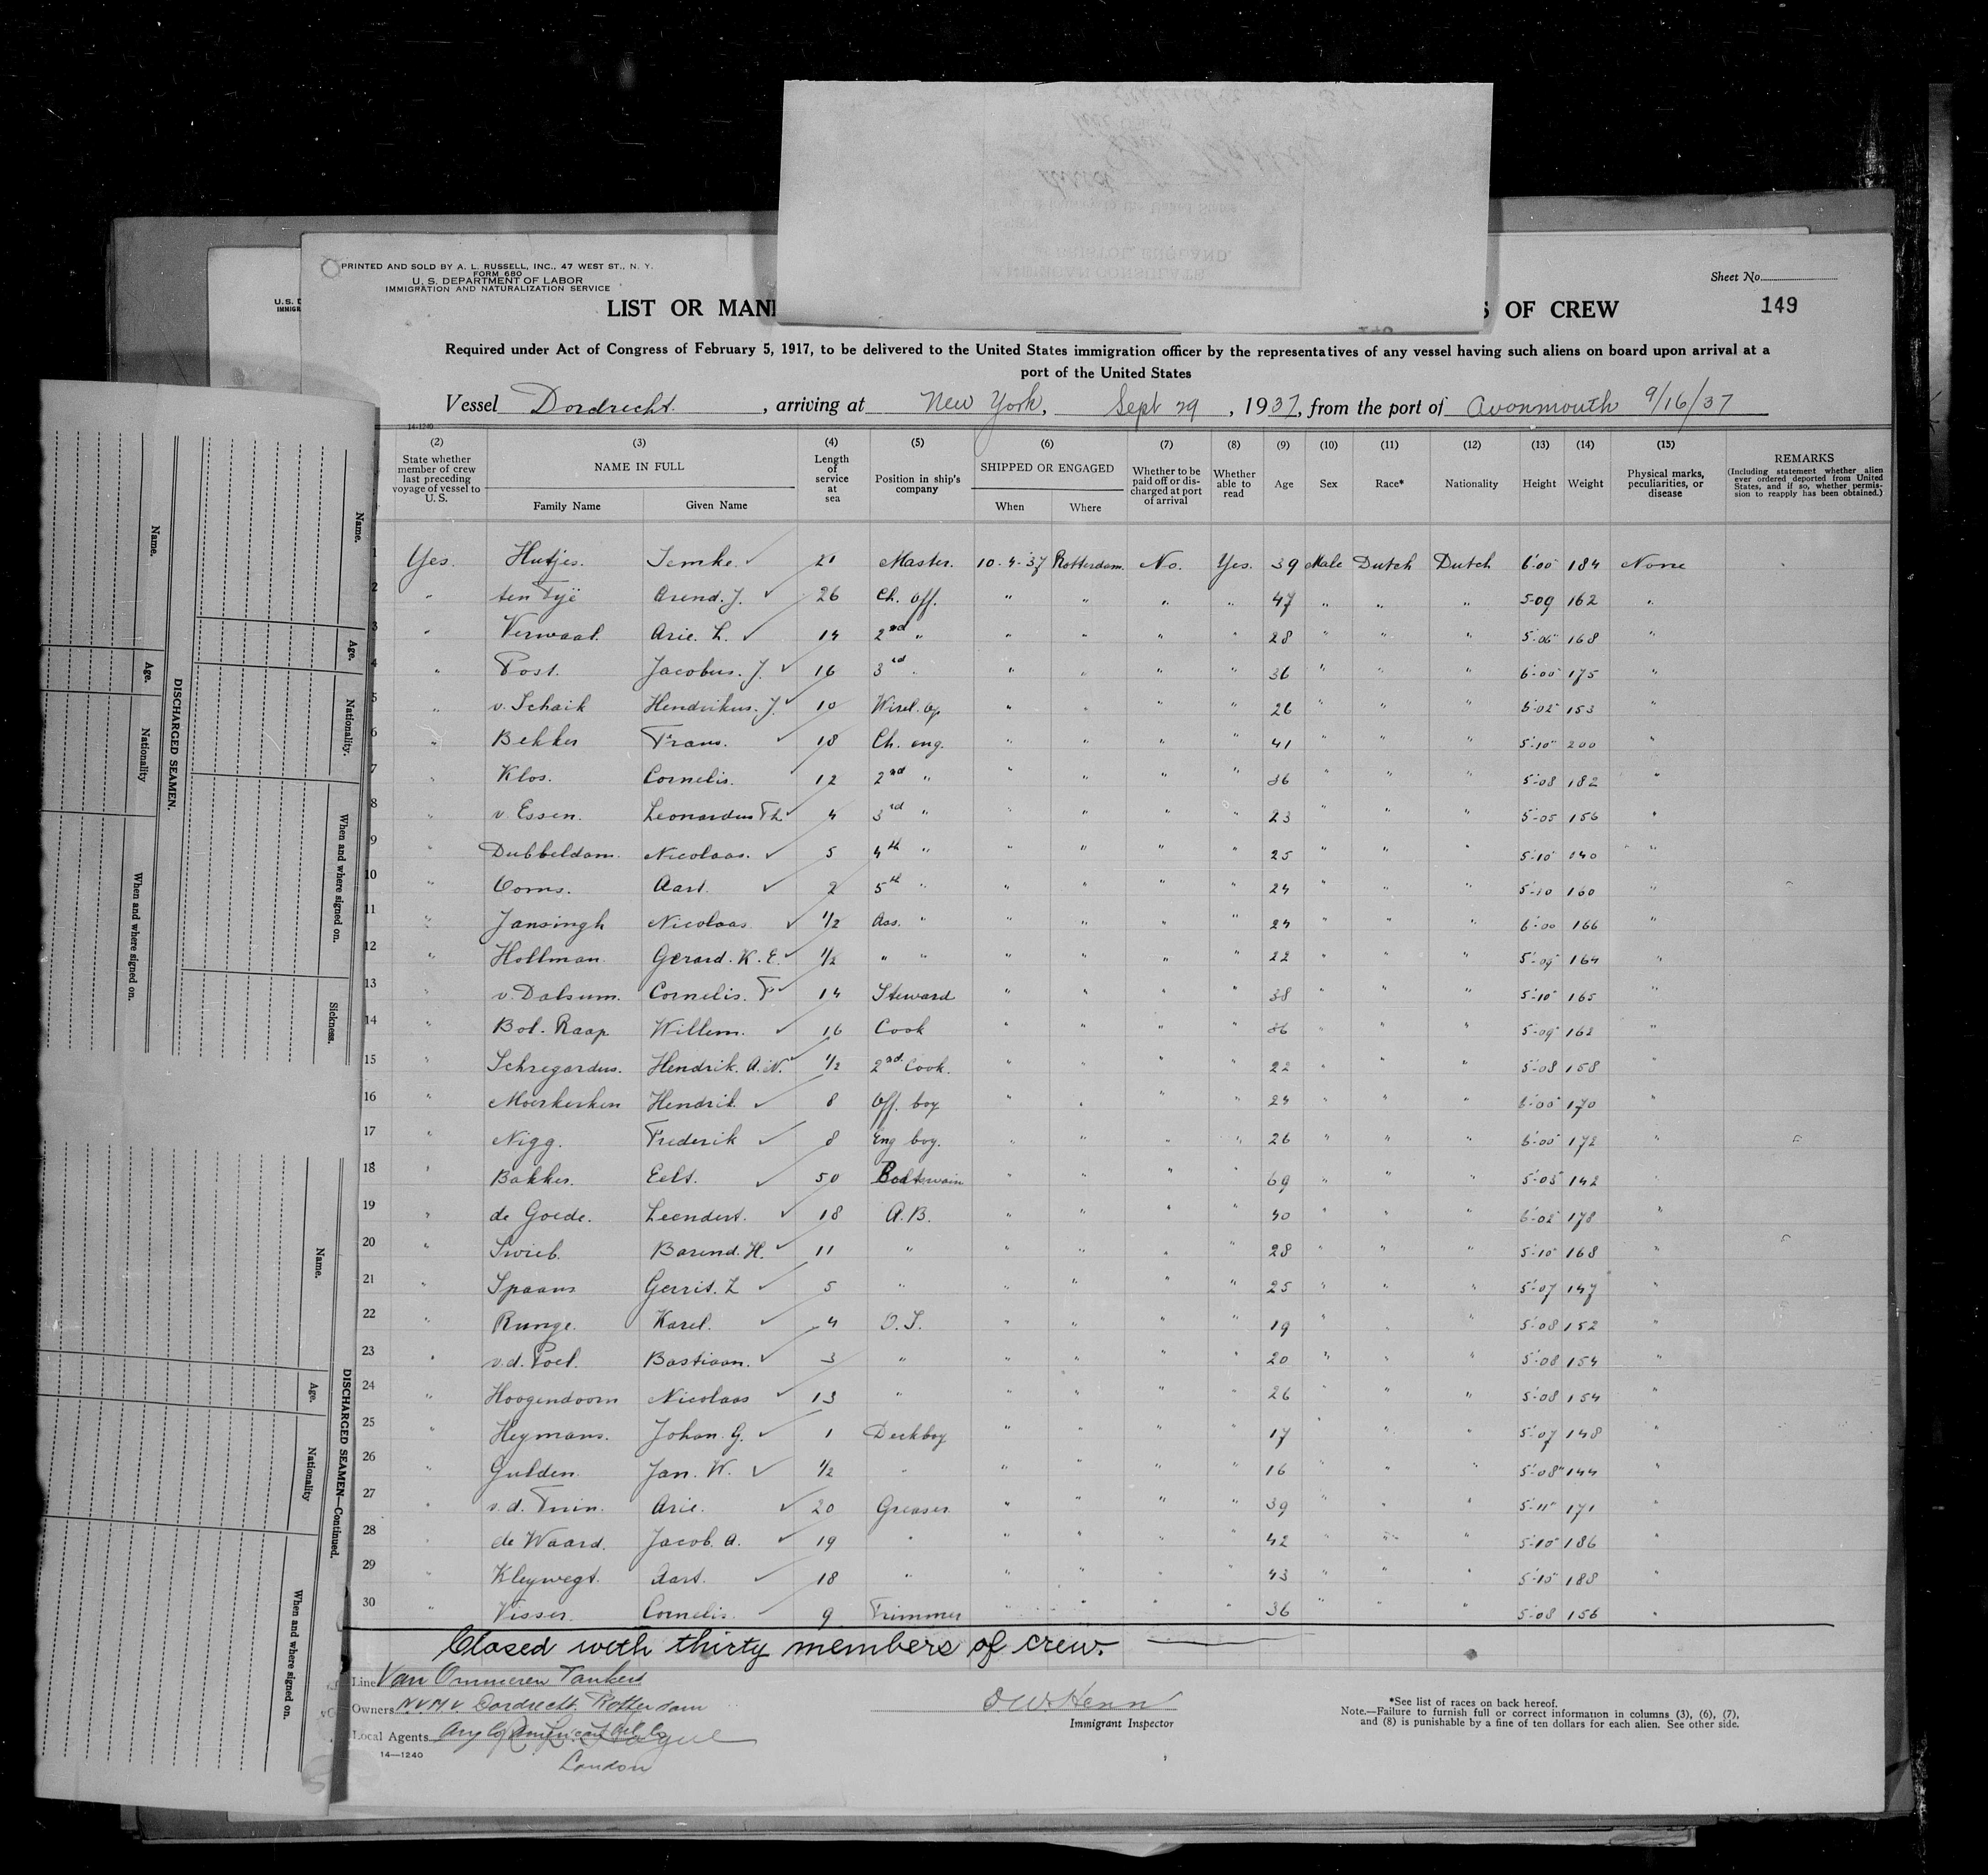 PRINTED AND SOLD BY A. L. RUSSELL, INC., 47 WEST ST., N. Y.
FORM 680
U. S. DEPARTMENT OF LABOR
IMMIGRATION AND NATURALIZATION SERVICE
Sheet No.
149
LIST OR MANI
S OF CREW
Required under Act of Congress of February 5, 1917, to be delivered to the United States immigration officer by the representatives of any vessel having such aliens on board upon arrival at a
port of the United States
Vessel Dordrecht , arriving at New York, Sept 29 , 1937, from the port of Avonmouth 9/16/37
14-1240
(2) (3) (4) (5) (6) (7) (8) (9) (10) (11) (12) (13) (14) (15)
State whether member of crew last preceding voyage of vessel to U. S.
NAME IN FULL
Family Name
Given Name
Length of service at sea
Position in ship's company
SHIPPED OR ENGAGED
When
Where
Whether to be paid off or discharged at port of arrival
Whether able to read
Age
Sex
Race*
Nationality
Height
Weight
Physical marks, peculiarities, or disease
REMARKS
(Including statement whether alien ever ordered deported from United States, and if so, whether permission to reapply has been obtained.)
1 Yes. Hutjes. Jemke. 21 Master. 10-4-37 Rotterdam. No. Yes. 39 Male Dutch Dutch 6'00" 184 None
2 " ten Tyë Arend. J. 26 Ch. off. " " " " 47 " " " 5-09 162 "
3 " Verwaal. Arie. L. 14 2nd " " " " " 28 " " " 5'06" 168 "
4 " Post. Jacobus. J. 16 3rd " " " " " 36 " " " 6'00" 175 "
5 " v. Schaik Hendrikus. J. 10 Wirel. op " " " " 26 " " " 6'02" 153 "
6 " Bekker Frans. 18 Ch. eng. " " " " 41 " " " 5'10" 200 "
7 " Klos. Cornelis. 12 2nd " " " " " 36 " " " 5'08 182 "
8 " v. Essen. Leonardus Th. 4 3rd " " " " " 23 " " " 5'05 156 "
9 " Dubbeldam. Nicolaas. 5 4th " " " " " 25 " " " 5'10" 140 "
10 " Ooms. Aart. 2 5th " " " " " 24 " " " 5'-10 160 "
11 " Jansingh Nicolaas 1/2 Ass. " " " " " 24 " " " 6'00 166 "
12 " Hollman. Gerard. K. E. 1/2 " " " " " " 22 " " " 5'09" 164 "
13 " v. Dalsum. Cornelis. F. 14 Steward " " " " 38 " " " 5'10" 165 "
14 " Bol-Raap. Willem. 16 Cook " " " " 36 " " " 5'09" 162 "
15 " Schregardus. Hendrik. A. N. 1/2 2nd Cook. " " " " 22 " " " 5'-08 158 "
16 " Moerkerken Hendrik. 8 Off. boy " " " " 24 " " " 6'00" 170 "
17 " Nigg. Frederik 8 Eng boy. " " " " 26 " " " 6'00" 172 "
18 " Bakker. Eelt. 50 Boatswain " " " " 69 " " " 5'05" 142 "
19 " de Goede. Leendert. 18 A.B. " " " " 40 " " " 6'02" 178 "
20 " Swieb. Barend. H. 11 " " " " " 28 " " " 5'10" 168 "
21 " Spaans Gerrit. L 5 " " " " " 25 " " " 5'-07 147 "
22 " Runge. Karel. 4 O.S. " " " " 19 " " " 5'08 152 "
23 " v.d. Poel. Bastiaan. 3 " " " " " 20 " " " 5'-08 154 "
24 " Hoogendoorn Nicolaas 13 " " " " " 26 " " " 5'-08 154 "
25 " Heymans. Johan. G. 1 Deckboy " " " " 17 " " " 5'07 148 "
26 " Gulden. Jan. W. 1/2 " " " " " 16 " " " 5'-08" 144 "
27 " v.d. Tuin. Arie. 20 Greaser " " " " 39 " " " 5'-11" 171 "
28 " de Waard. Jacob. A. 19 " " " " " 42 " " " 5'-10" 186 "
29 " Kleywegt. Aart. 18 " " " " " 43 " " " 5'-10" 188 "
30 " Visser. Cornelis. 9 Trimmer " " " " 36 " " " 5'08 156 "
Closed with thirty members of crew.
Line Van Ommeren Tankers
Owners N.V.M.V. Dordrecht. Rotterdam
Local Agents Anglo American Oil Co
London
14—1240
Immigrant Inspector
*See list of races on back hereof.
Note.—Failure to furnish full or correct information in columns (3), (6), (7),
and (8) is punishable by a fine of ten dollars for each alien. See other side.
U. S. D
IMMIGR
DISCHARGED SEAMEN.
Name.
Age.
Nationality.
When and where signed on.
Sickness.
Name.
Age.
Nationality
When and where signed on.
DISCHARGED SEAMEN—Continued.
Name.
Age.
Nationality
When and where signed on.
AMERICAN CONSULATE
BRISTOL, ENGLAND